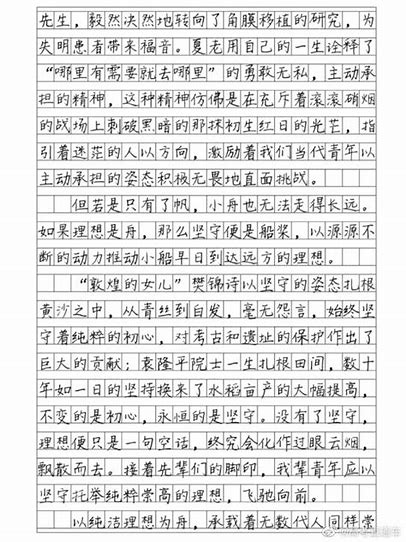 先生，毅然决然地转向了角膜移植的研究，为
失明患者带来福音。夏老用自己的一生诠释了
“哪里有需要就去哪里”的勇敢无私，主动承
担的精神，这种精神仿佛是在充斥着滚滚硝烟
的战场上刺破黑暗的那抹初生红日的光芒，指
引着迷茫的人以方向，激励着我们当代青年以
主动承担的姿态积极无畏地直面挑战。
但若是只有了帆，小舟也无法走得长远。
如果理想是舟，那么坚守便是船桨，以源源不
断的动力推动小船早日到达远方的理想。
“敦煌的女儿”樊锦诗以坚守的姿态扎根
黄沙之中，从青丝到白发，毫无怨言，始终坚
守着纯粹的初心，对考古和遗址的保护作出了
巨大的贡献；袁隆平院士一生扎根田间，数十
年如一日的坚持换来了水稻亩产的大幅提高，
不变的是初心，永恒的是坚守。没有了坚守，
理想便只是一句空话，终究会化作过眼云烟，
飘散而去。接着先辈们的脚印，我辈青年应以
坚守托举纯粹崇高的理想，飞驰向前。
以纯洁理想为舟，承载着无数代人同样崇